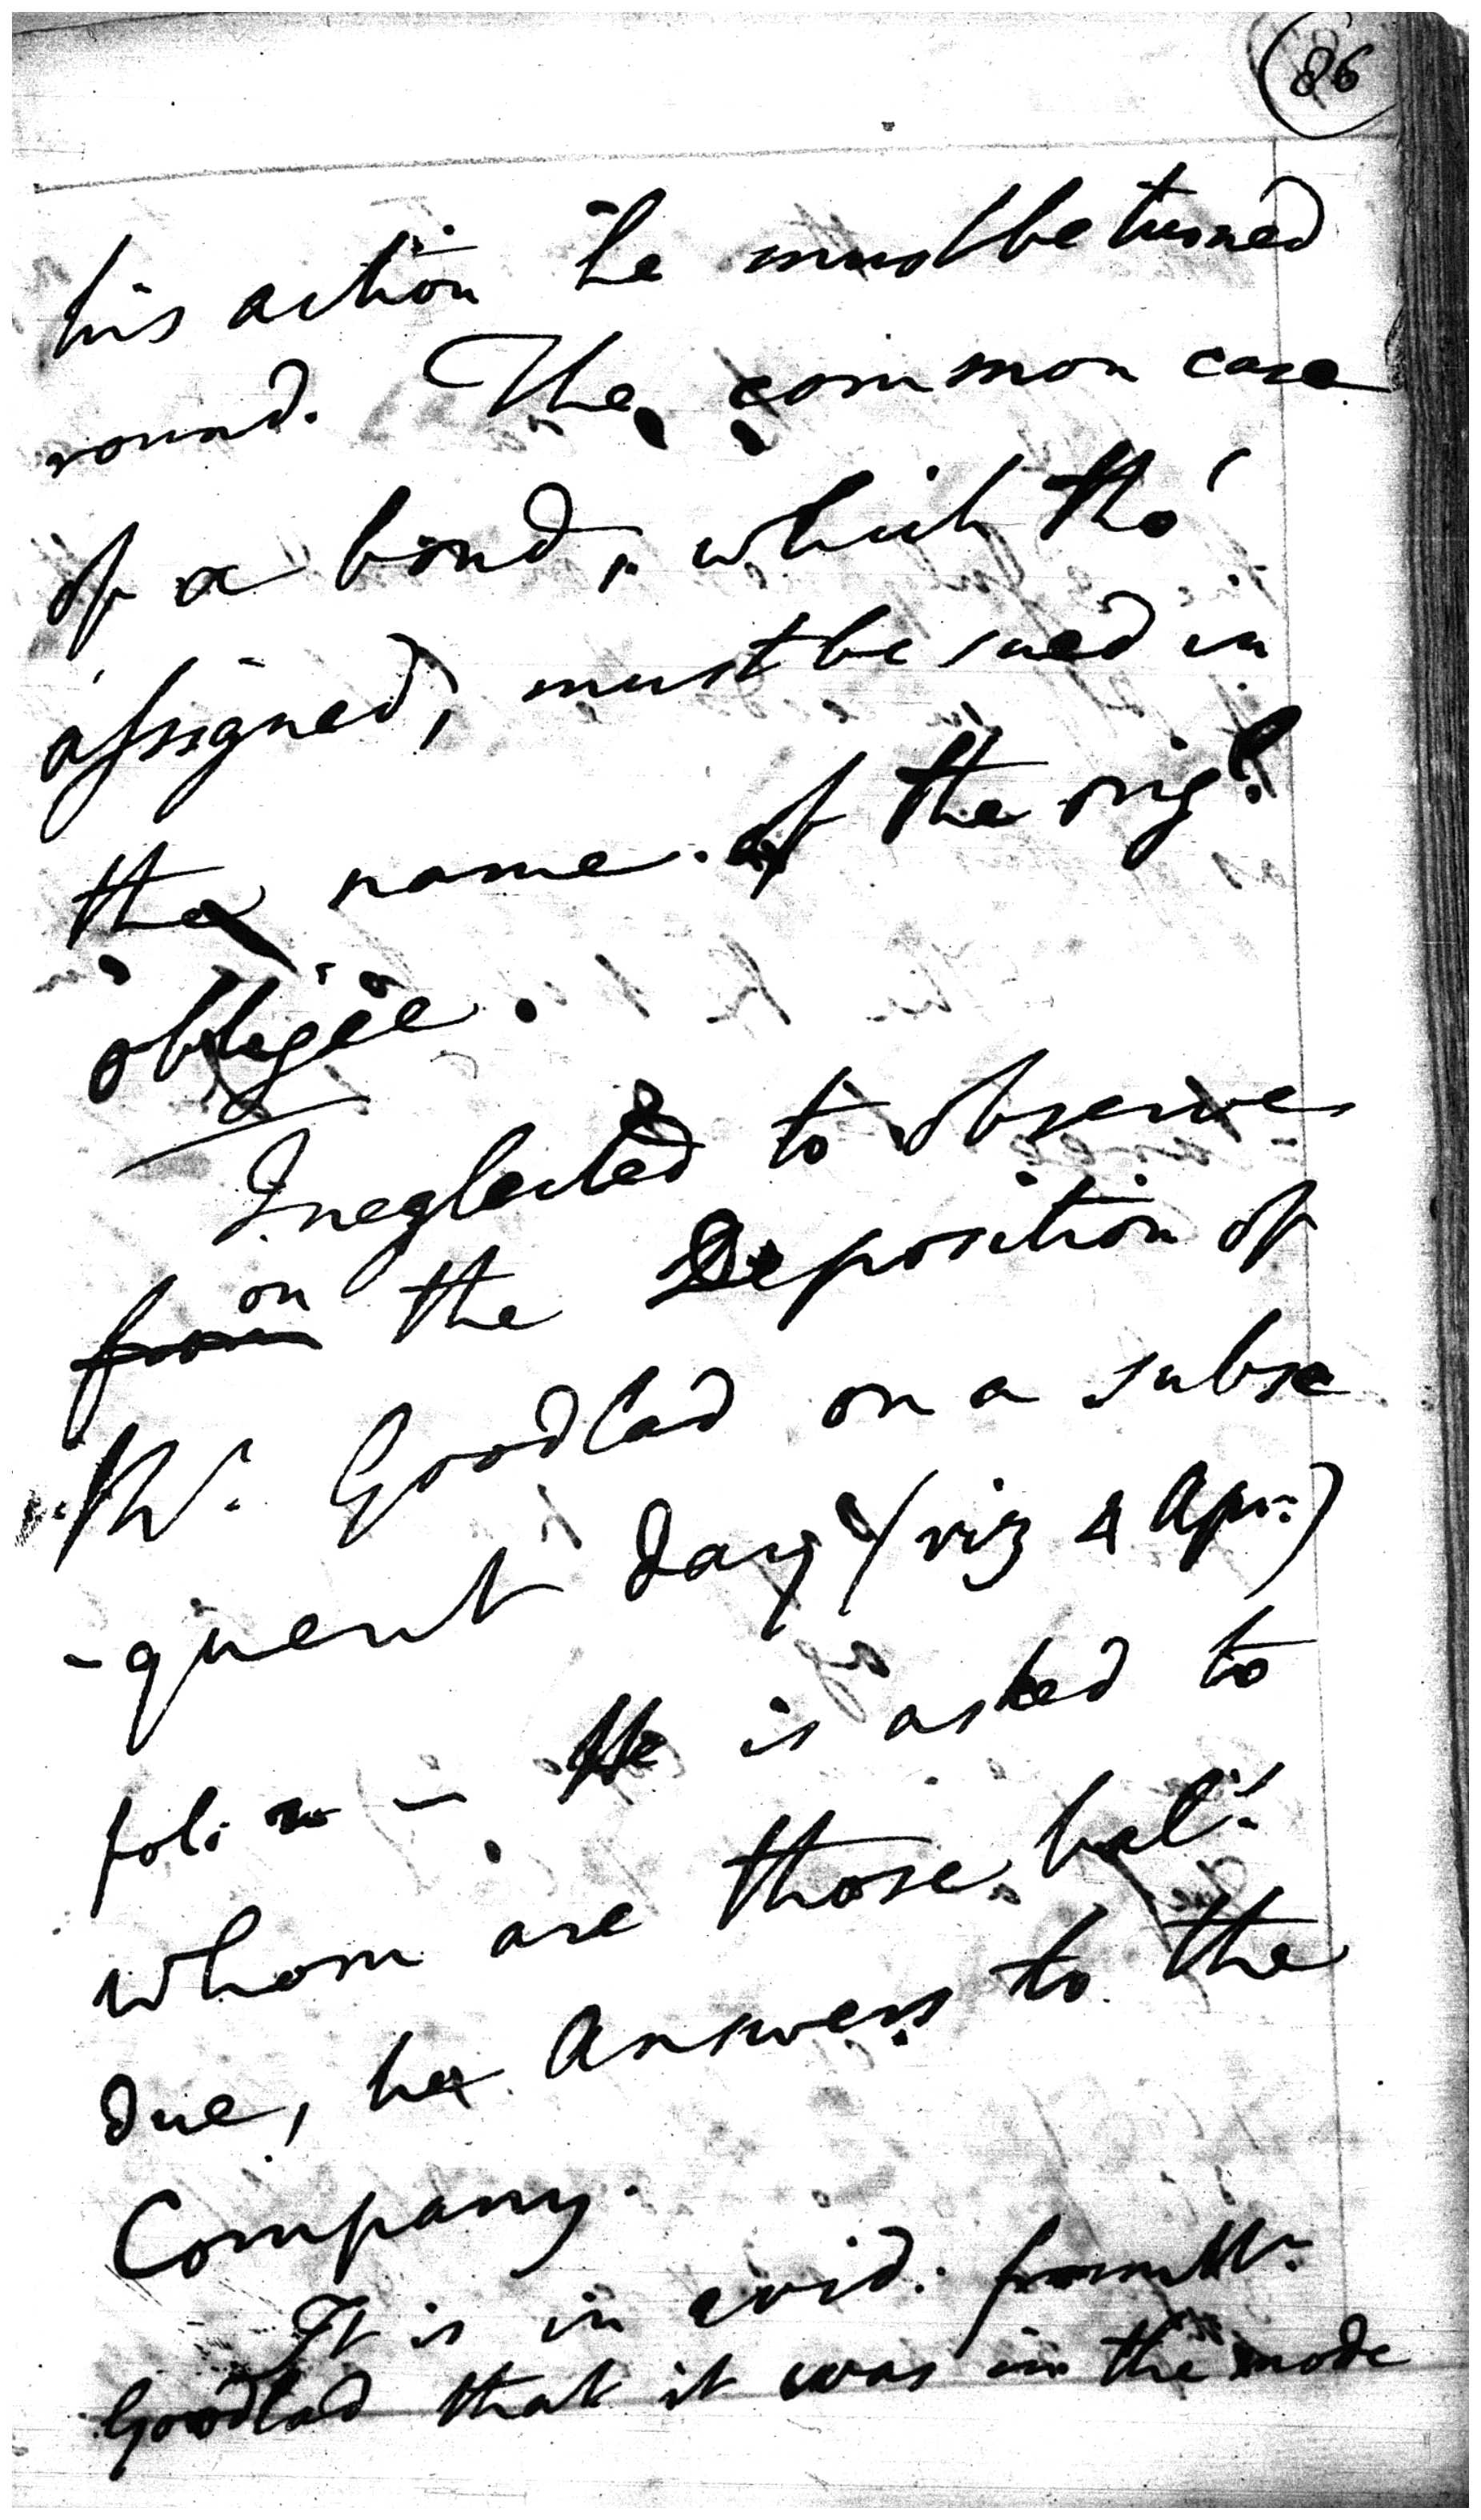 86
his action he must be turned
round. The common case
of a bond, which tho'
assigned, must be sued in
the name of the origl.
obligee.
I neglected to observe
from on the Deposition of
Mr. Goodlad on a subse
-quent day (viz 4 Apr.)
fol: - He is asked to
whom are those bals.
due, he Answers to the
Company.
It is in evid. from Mr.
Goodlad that it was in the mode